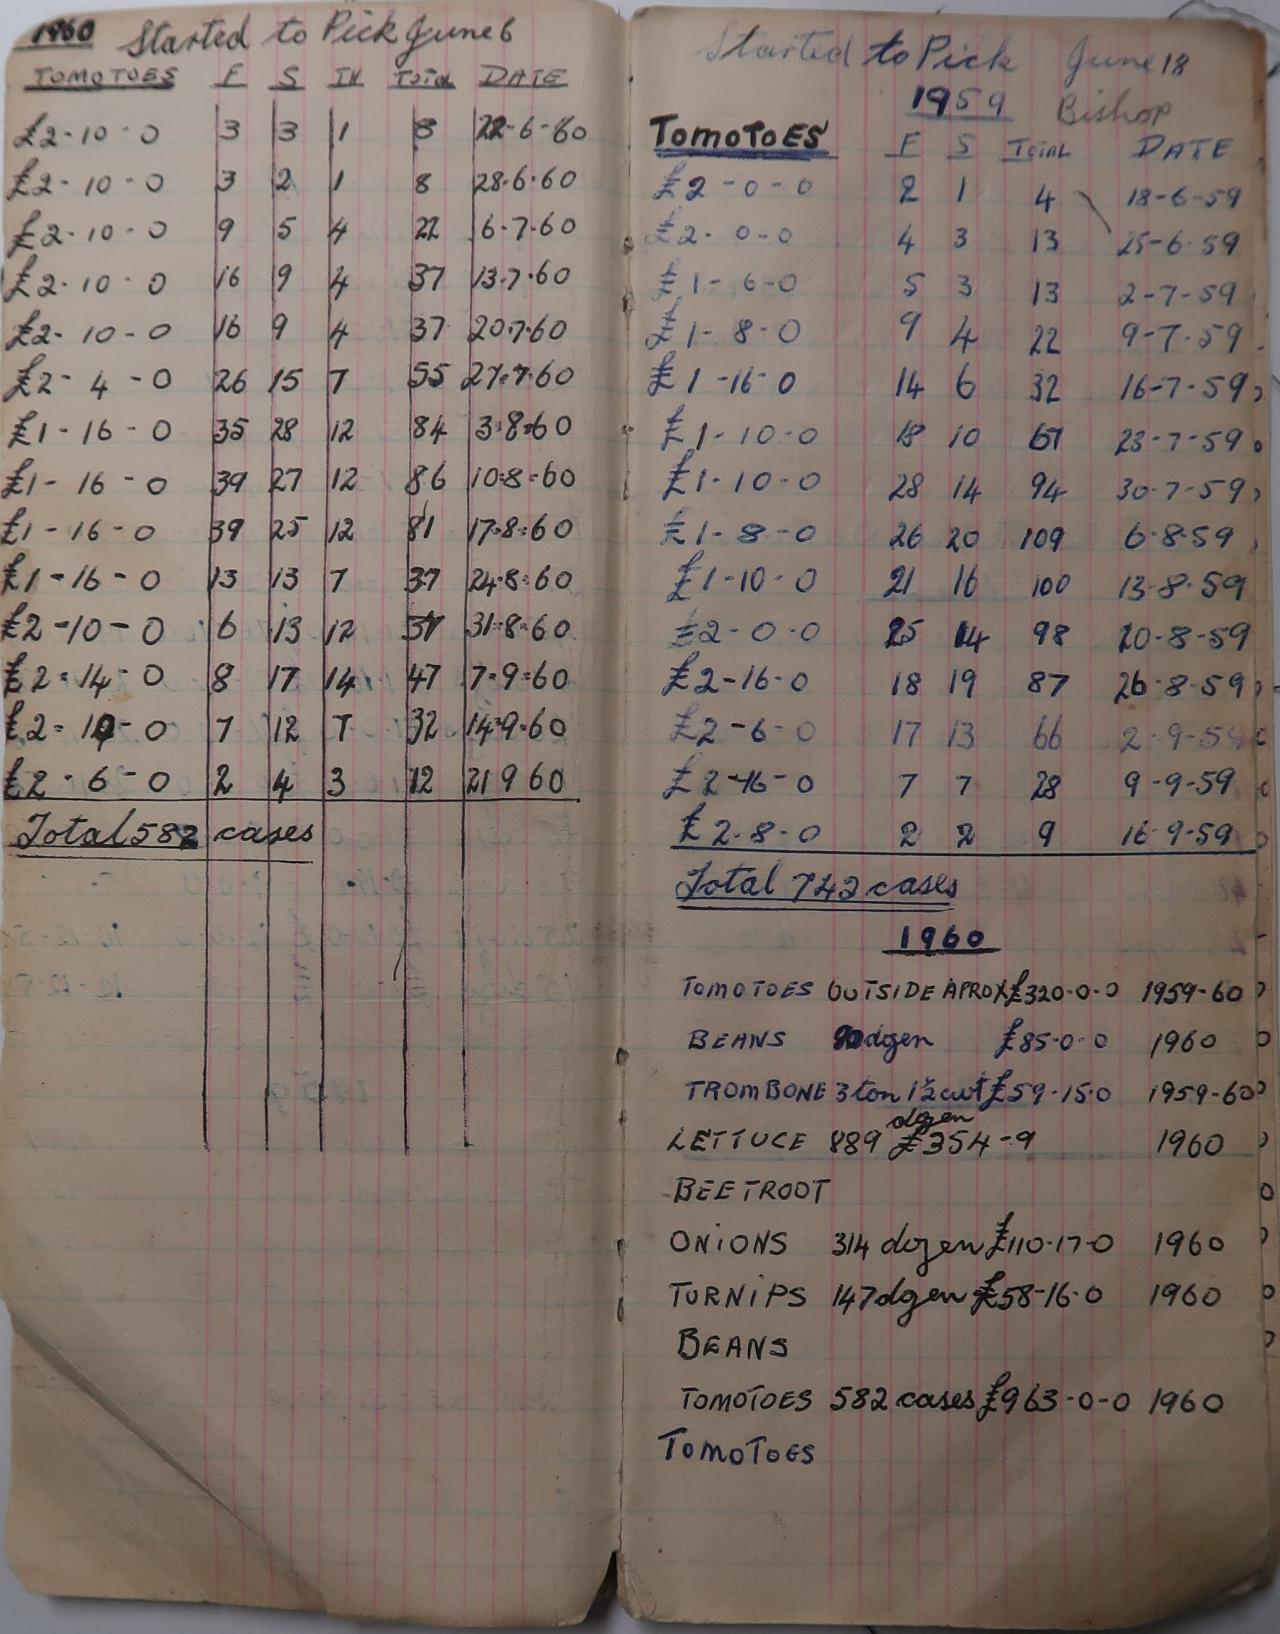 1960 Started to Pick June 6
TOMOTOES F S IV Total DATE
£2-10-0 3 3 1 8 22-6-60
£2-10-0 3 2 1 8 28.6.60
£2-10-0 9 5 4 22 6.7.60
£2-10-0 16 9 4 37 13.7.60
£2-10-0 16 9 4 37 20.7.60
£2-4-0 26 15 7 55 27.7.60
£1-16-0 35 28 12 84 3.8.60
£1-16-0 39 27 12 86 10=8=60
£1-16-0 39 25 12 81 17=8=60
£1-16-0 13 13 7 37 24.8=60
£2-10-0 6 13 12 37 31=8=60
£2=14-0 8 17 14 47 7=9=60
£2=10-0 7 12 7 32 14=9.60
£2-6-0 2 4 3 12 21 9 60
Total 582 cases
Started to Pick June 18
1959 Bishop
TomoToES F S Total DATE
£2-0-0 2 1 4 18-6-59
£2-0-0 4 3 13 25-6-59
£1-6-0 5 3 13 2-7-59
£1-8-0 9 4 22 9-7-59
£1-16-0 14 6 32 16-7-59
£1-10-0 18 10 67 23-7-59
£1-10-0 28 14 94 30-7-59
£1-8-0 26 20 109 6-8-59
£1-10-0 21 16 100 13-8-59
£2-0-0 25 14 98 20-8-59
£2-16-0 18 19 87 26-8-59
£2-6-0 17 13 66 2-9-59
£2-16-0 7 7 28 9-9-59
£2-8-0 2 2 9 16-9-59
Total 742 cases
1960
TOMOTOES OUTSIDE APROX £320-0-0 1959-60
BEANS dozen £85-0-0 1960
TROMBONE 3 ton 1½ cwt £59-15-0 1959-60
LETTUCE 889 dozen £354-9 1960
BEETROOT
ONIONS 314 dozen £110-17-0 1960
TURNIPS 147 dozen £58-16-0 1960
BEANS
TOMOTOES 582 cases £963-0-0 1960
TomoToES